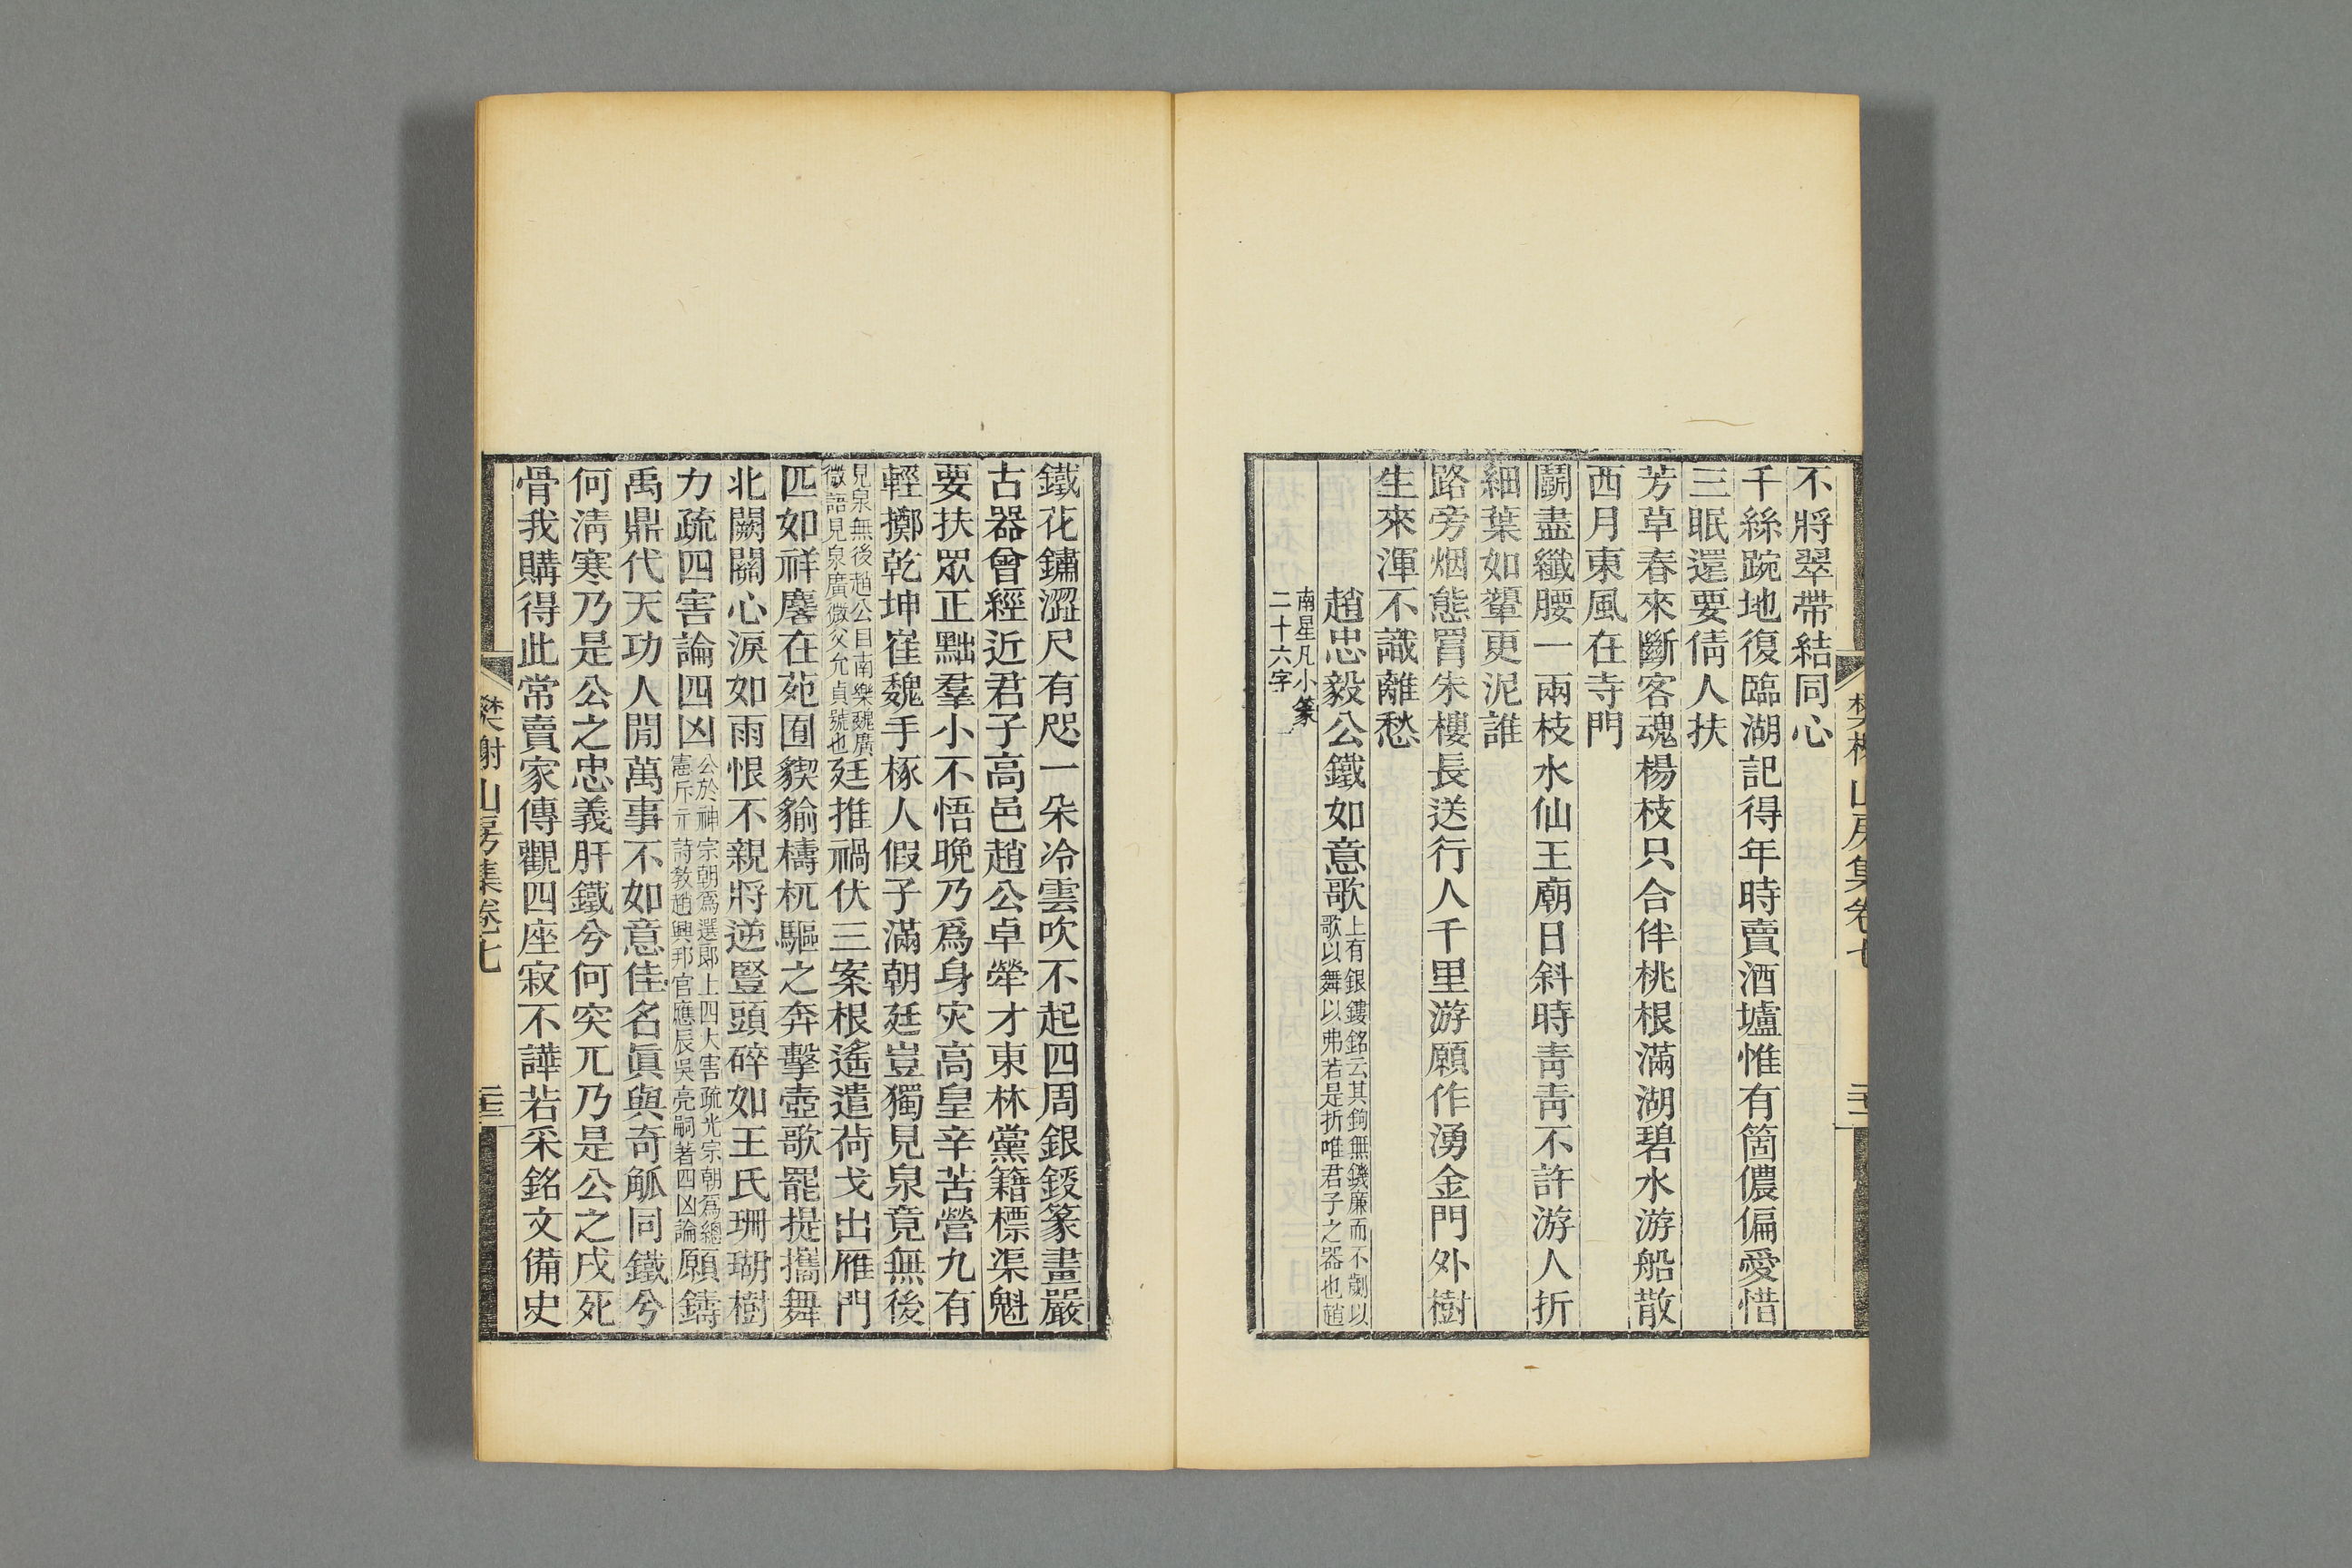 樊榭山房集卷七
不將翠帶結同心
千絲踠地復臨湖記得年時賣酒壚惟有箇儂偏愛惜
三眠還要倩人扶
芳草春來斷客魂楊枝只合伴桃根滿湖碧水游船散
西月東風在寺門
鬭盡纖腰一兩枝水仙王廟日斜時靑靑不許游人折
細葉如顰更泥誰
路旁烟態罥朱樓長送行人千里游願作湧金門外樹
生來渾不識離愁
趙忠毅公鐵如意歌
上有銀鏤銘云其鉤無鐖廉而不劌以
歌以舞以弗若是折唯君子之器也趙
南星凡小篆
二十六字
鐵花鏽澀尺有咫一朵冷雲吹不起四周銀錽篆畫嚴
古器曾經近君子高邑趙公卓犖才東林黨籍標渠魁
要扶眾正黜羣小不悟晚乃爲身灾高皇辛苦營九有
輕擲乾坤崔魏手椓人假子滿朝廷豈獨見泉竟無後
見泉無後趙公目南樂魏廣
微語見泉廣微父允貞號也
廷推禍伏三案根遙遣荷戈出雁門
匹如祥麐在苑囿貏貐檮杌驅之奔擊壺歌罷提攜舞
北闕關心淚如雨恨不親將逆豎頭碎如王氏珊瑚樹
力疏四害論四凶
公於神宗朝爲選郎上四大害疏光宗朝爲總
憲斥亓詩敎趙興邦官應辰吳亮嗣著四凶論
願鑄
禹鼎代天功人閒萬事不如意佳名眞與奇觚同鐵兮
何淸寒乃是公之忠義肝鐵兮何突兀乃是公之戌死
骨我購得此常賣家傳觀四座寂不譁若采銘文備史
樊榭山房集卷七